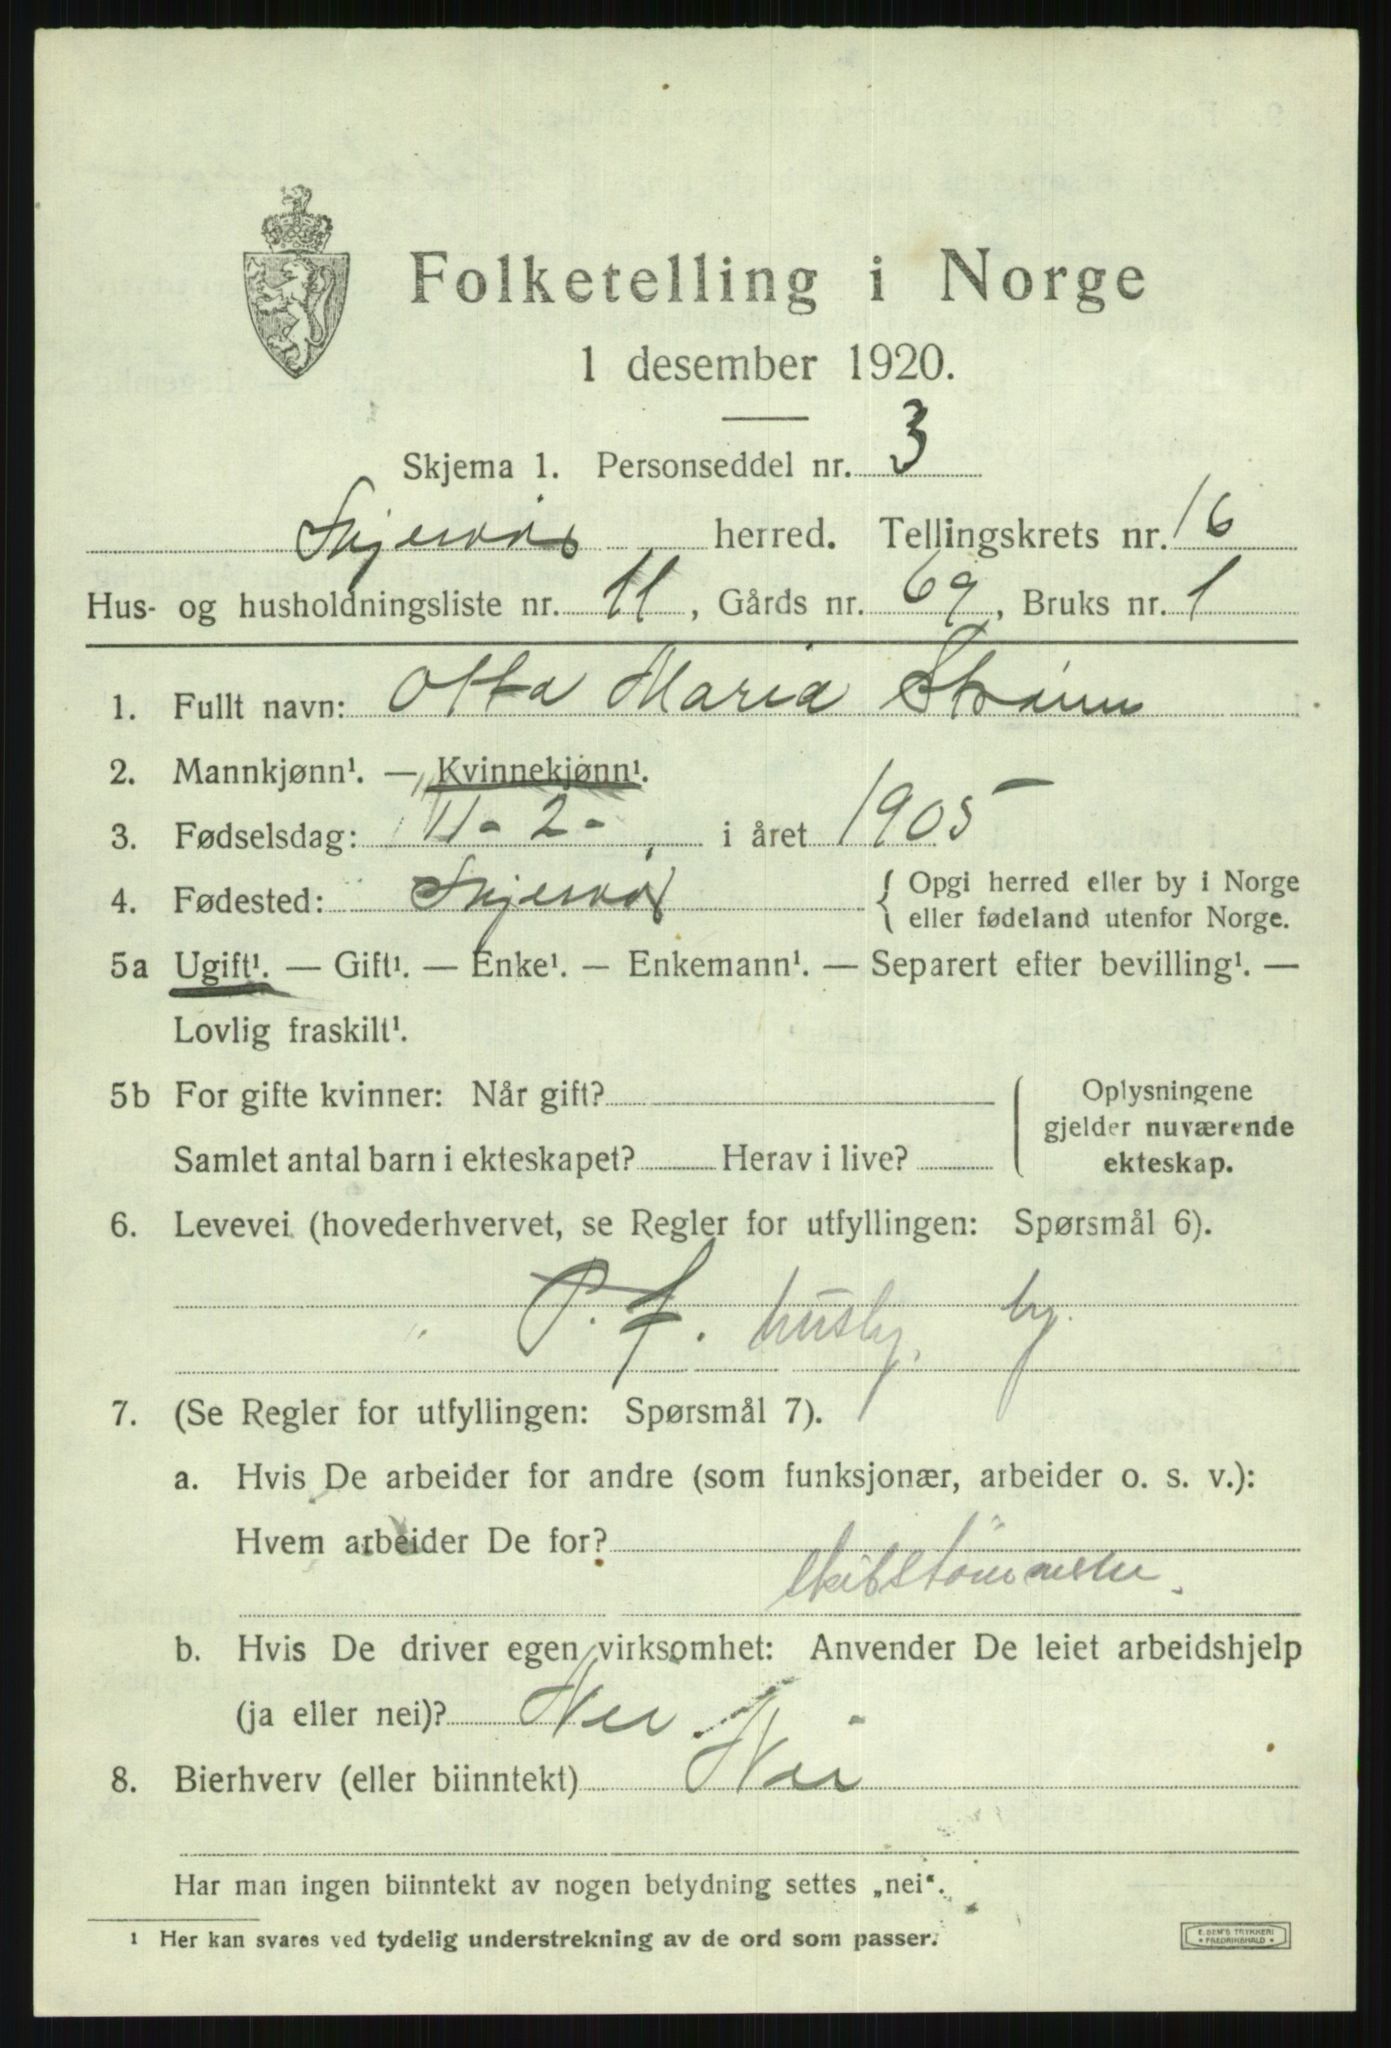 Folketelling i Norge
1 desember 1920.
Skjema 1. Personseddel nr. 3
Skjervøy herred. Tellingskrets nr. 16
Hus- og husholdningsliste nr. 11, Gårds nr. 69, Bruks nr. 1
1. Fullt navn: Otta Maria
2. Mannkjønn¹. — Kvinnekjønn¹.
3. Fødselsdag: 11-2-, i året 1905
4. Fødested: Skjervøy { Opgi herred eller by i Norge
eller fødeland utenfor Norge.
5a Ugift¹. — Gift¹. — Enke¹. — Enkemann¹. — Separert efter bevilling¹. —
Lovlig fraskilt¹.
5b For gifte kvinner: Når gift? Oplysningene
gjelder nuværende
Samlet antal barn i ekteskapet? Herav i live? ekteskap.
6. Levevei (hovederhvervet, se Regler for utfyllingen: Spørsmål 6).
P. f. husby. by.
7. (Se Regler for utfyllingen: Spørsmål 7).
a. Hvis De arbeider for andre (som funksjonær, arbeider o. s. v.):
Hvem arbeider De for?
b. Hvis De driver egen virksomhet: Anvender De leiet arbeidshjelp
(ja eller nei)? Nei.
8. Bierhverv (eller biinntekt) Nei
Har man ingen biinntekt av nogen betydning settes „nei“.
¹ Her kan svares ved tydelig understrekning av de ord som passer.
E. SEM'S TRYKKERI
* FREDRIKSHALD *